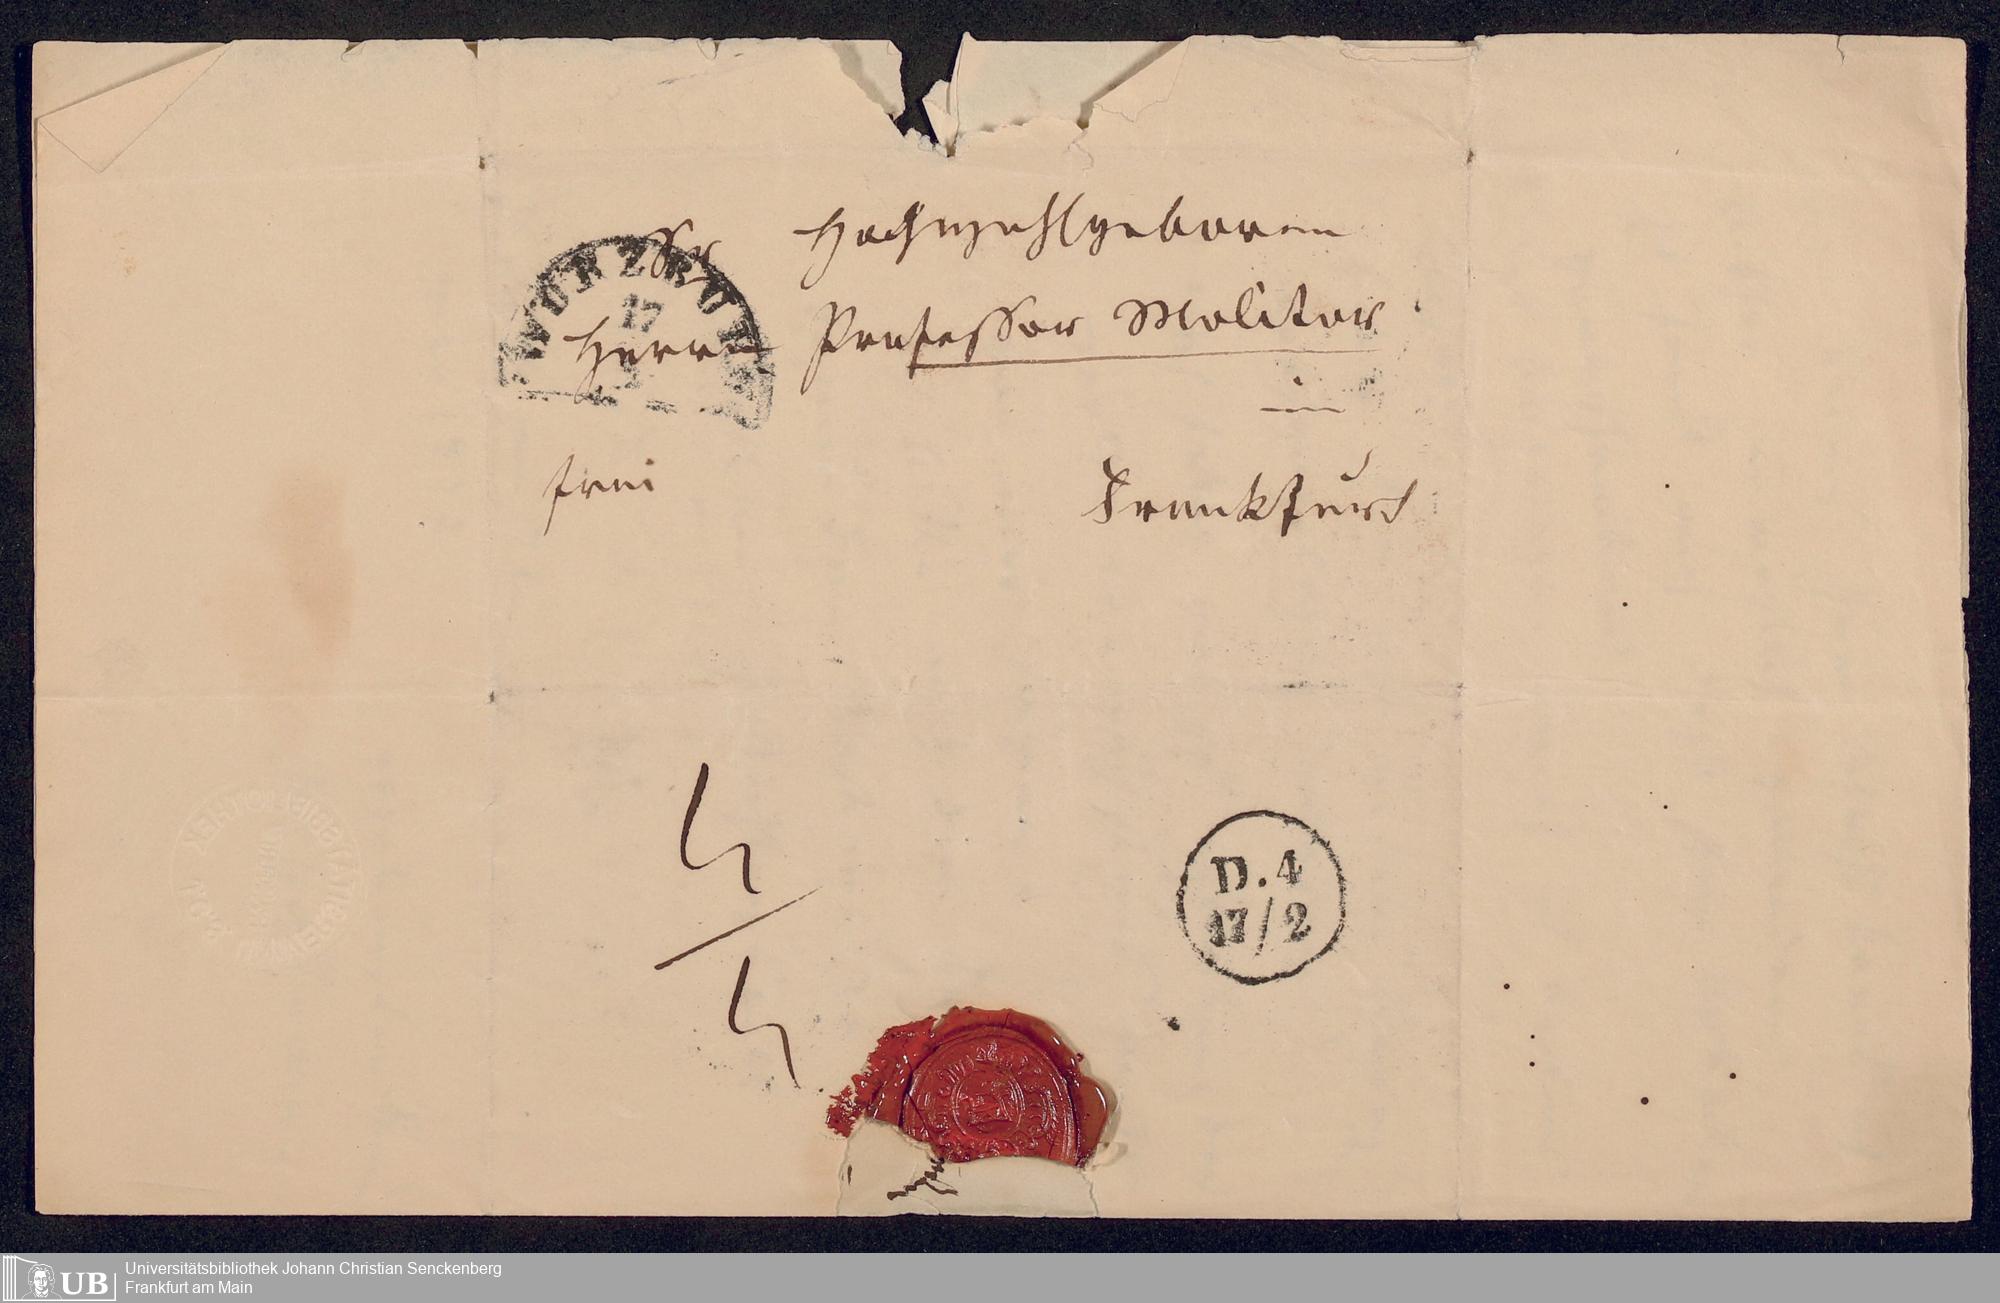 Sr Hochwohlgeboren
WÜRZBUR
17
Herrn Professor Molitor
in
frei Frankfurt
D. 4
17/2
STADTBIBLIOTHEK
UB
Universitätsbibliothek Johann Christian Senckenberg
Frankfurt am Main